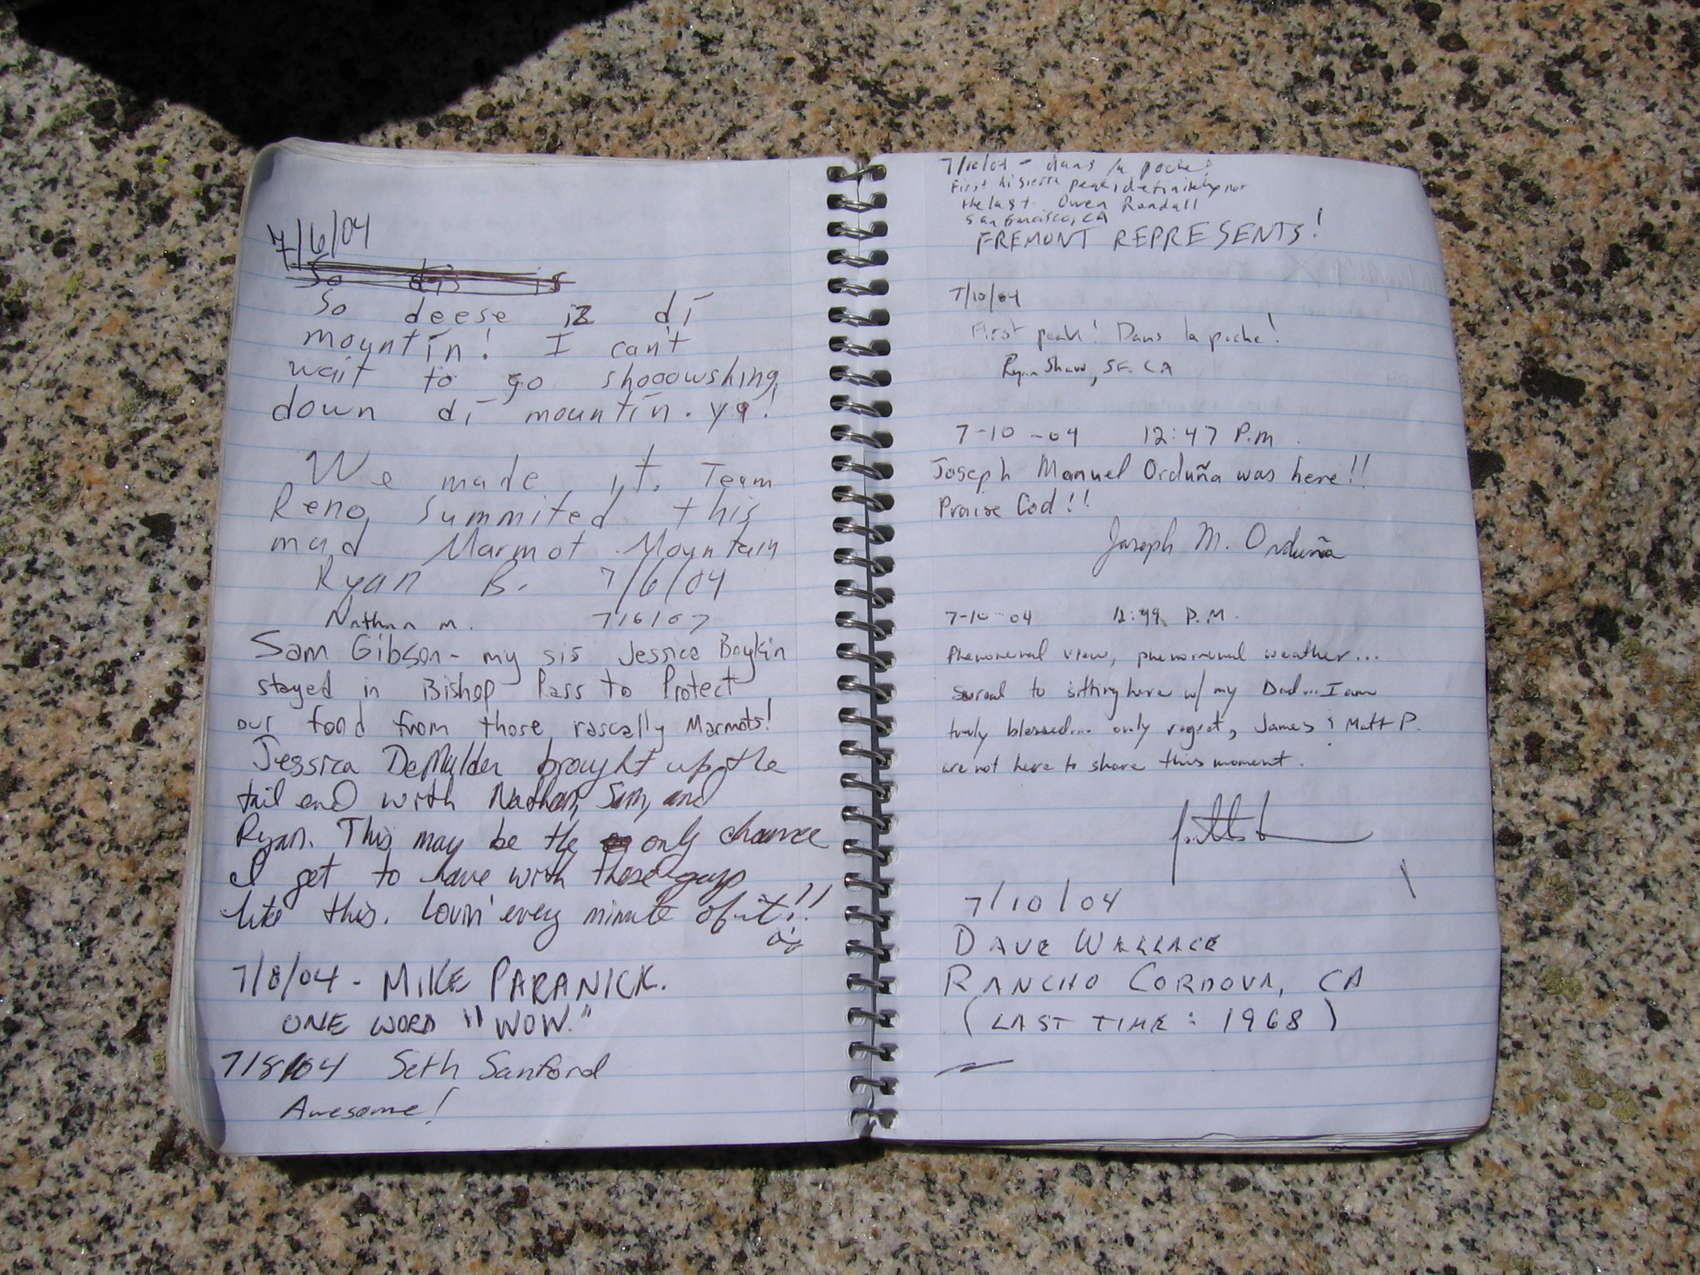 7/6/04
So dis is
So deese iz di
mountin! I can't
wait to go shooowshing
down di mountin. ya!
We made it. Team
Reno, summited this
mad Marmot Mountain
Ryan B. 7/6/04
Nathan M. 7/6/07
Sam Gibson - my sis Jessica Boykin
stayed in Bishop Pass to Protect
our food from those rascally Marmots!
Jessica DeMulder brought up the
tail end with Nathan, Sam, and
Ryan. This may be the only chance
I get to have with these guys
like this. Lovin' every minute of it!!
7/8/04 - MIKE PARANICK.
ONE WORD "WOW."
7/8/04 Seth Sanford
Awesome!
7/10/04 - dans la poche!
First hi sierra peak, definitely not
the last. Owen Randall
San Francisco, CA
FREMONT REPRESENTS!
7/10/04
First peak! Dans la poche!
Ryan Shaw, SF. CA
7-10-04 12:47 P.m.
Joseph Manuel Orduña was here!!
Praise God!!
Joseph M. Orduña
7-10-04 12:49 P.M.
Phenomenal view, phenomenal weather...
surreal to sitting here w/ my Dad... I am
truly blessed... only regret, James & Matt P.
are not here to share this moment.
7/10/04
DAVE WALLACE
RANCHO CORDOVA, CA
(LAST TIME: 1968)